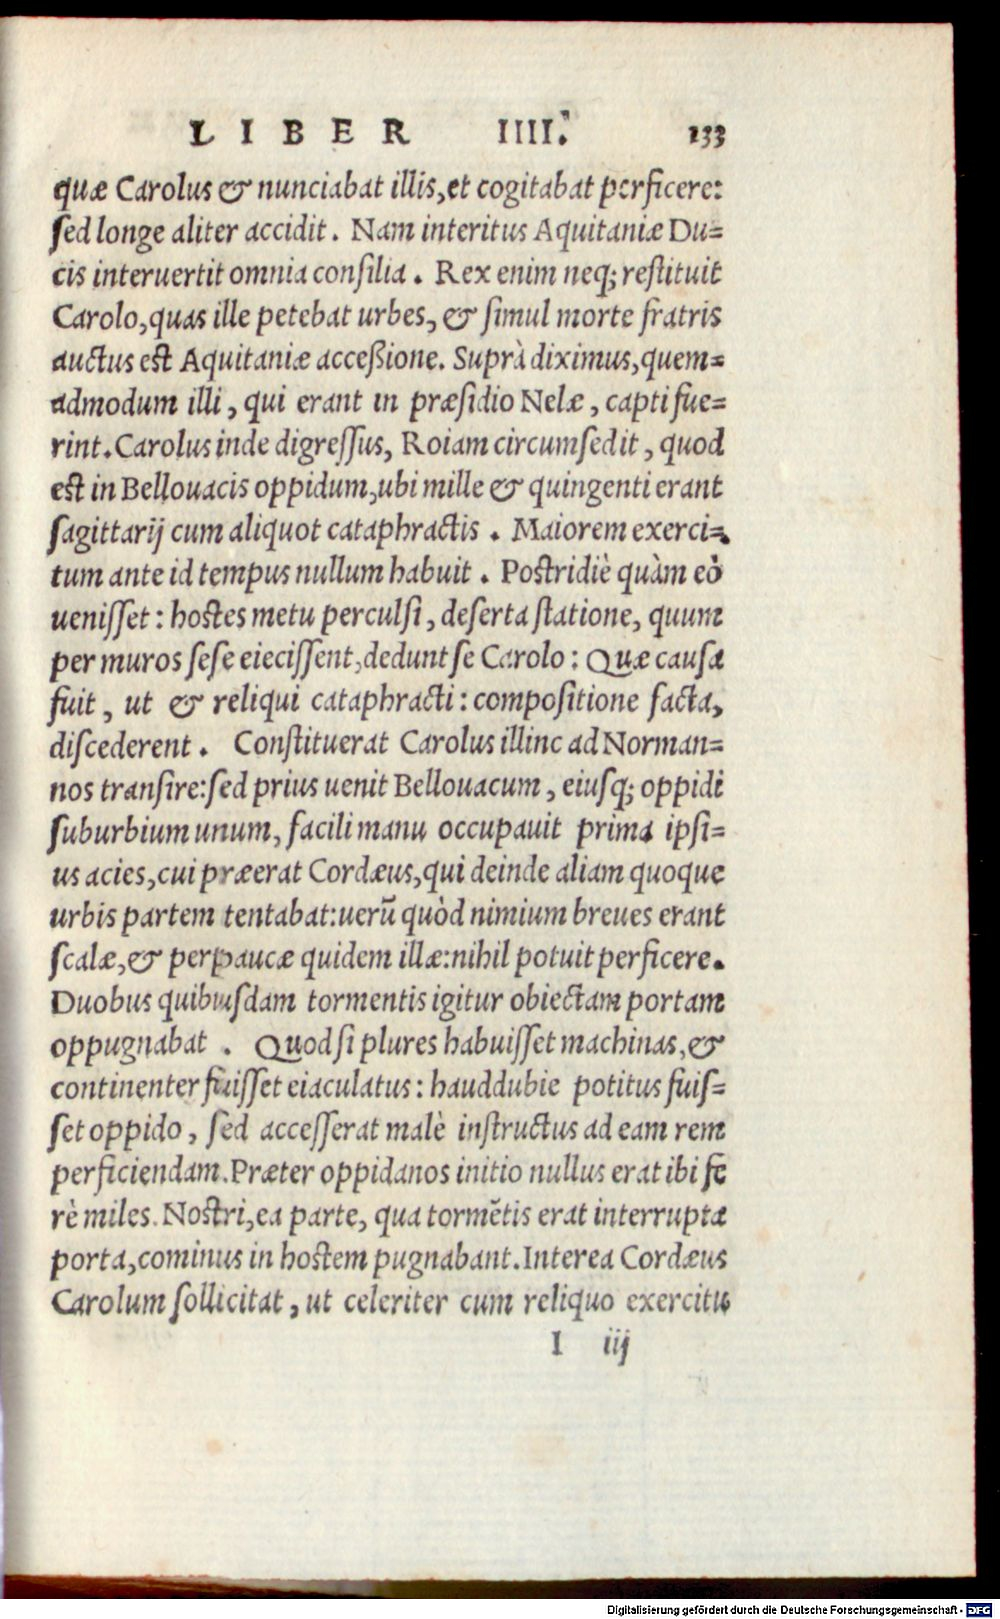 LIBER IIII. 133
quæ Carolus & nunciabat illis, et cogitabat perficere:
ſed longe aliter accidit. Nam interitus Aquitaniæ Du=
cis interuertit omnia conſilia. Rex enim neq; reſtituit
Carolo, quas ille petebat urbes, & ſimul morte fratris
auctus eſt Aquitaniæ acceßione. Suprà diximus, quem=
admodum illi, qui erant in præſidio Nelæ, capti fue=
rint. Carolus inde digreſſus, Roiam circumſedit, quod
eſt in Bellouacis oppidum, ubi mille & quingenti erant
ſagittarij cum aliquot cataphractis. Maiorem exerci=
tum ante id tempus nullum habuit. Poſtridiè quàm eò
ueniſſet: hoſtes metu perculſi, deſerta ſtatione, quum
per muros ſeſe eieciſſent, dedunt ſe Carolo: Quæ cauſa
fuit, ut & reliqui cataphracti: compoſitione facta,
diſcederent. Conſtituerat Carolus illinc ad Norman=
nos tranſire: ſed prius uenit Bellouacum, eiuſq; oppidi
ſuburbium unum, facili manu occupauit prima ipſi=
us acies, cui præerat Cordæus, qui deinde aliam quoque
urbis partem tentabat: uerũ quòd nimium breues erant
ſcalæ, & perpaucæ quidem illæ: nihil potuit perficere.
Duobus quibuſdam tormentis igitur obiectam portam
oppugnabat. Quod ſi plures habuiſſet machinas, &
continenter fuiſſet eiaculatus: haud dubie potitus fuiſ=
ſet oppido, ſed acceſſerat malè inſtructus ad eam rem
perficiendam. Præter oppidanos initio nullus erat ibi fe
rè miles. Noſtri, ea parte, qua tormẽtis erat interrupta
porta, cominus in hoſtem pugnabant. Interea Cordæus
Carolum ſollicitat, ut celeriter cum reliquo exercitu
I iij
Digitalisierung gefördert durch die Deutsche Forschungsgemeinschaft - DFG